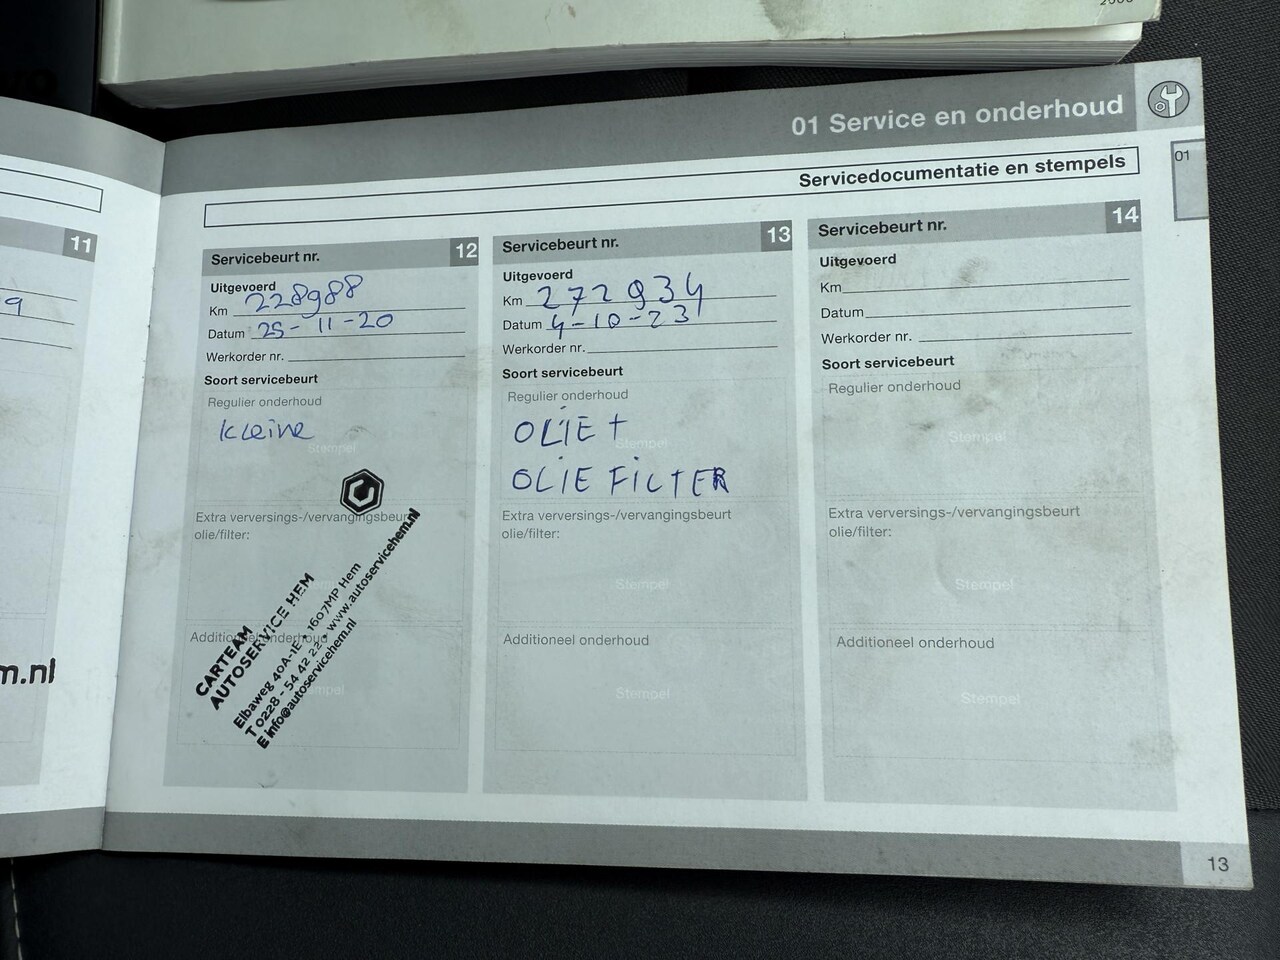 01 Service en onderhoud
01
Servicedocumentatie en stempels
11
9
m.nl
Servicebeurt nr. 12
Uitgevoerd
Km 228988
Datum 25-11-20
Werkorder nr.
Soort servicebeurt
Regulier onderhoud
kleine
Stempel
Extra verversings-/vervangingsbeurt
olie/filter:
Additioneel onderhoud
CARTEAM
AUTOSERVICE HEM
Elbaweg 40A-1E • 1607MP Hem
T 0228 - 54 42 22 • www.autoservicehem.nl
E info@autoservicehem.nl
Servicebeurt nr. 13
Uitgevoerd
Km 272934
Datum 4-10-23
Werkorder nr.
Soort servicebeurt
Regulier onderhoud
OLIE +
Stempel
OLIE FILTER
Extra verversings-/vervangingsbeurt
olie/filter:
Stempel
Additioneel onderhoud
Stempel
Servicebeurt nr. 14
Uitgevoerd
Km
Datum
Werkorder nr.
Soort servicebeurt
Regulier onderhoud
Stempel
Extra verversings-/vervangingsbeurt
olie/filter:
Stempel
Additioneel onderhoud
Stempel
13